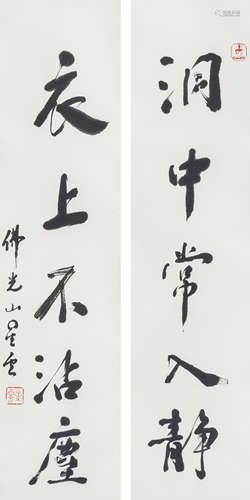 洞中常入靜
衣上不沾塵
佛光山星雲